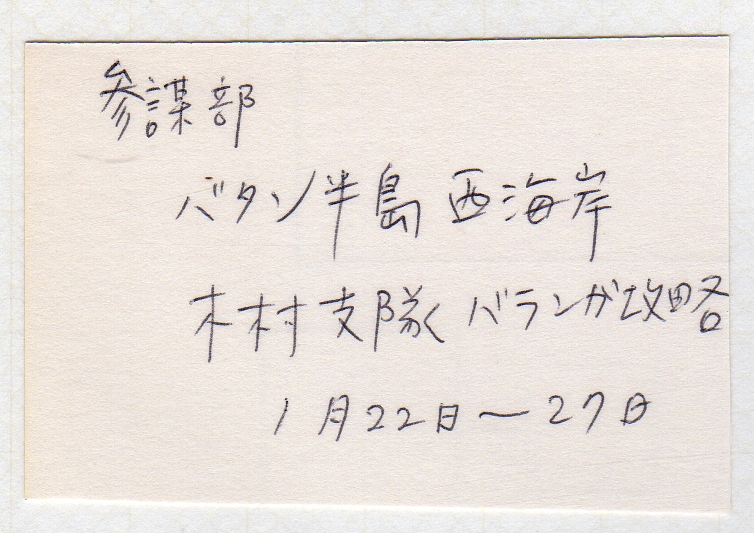 参謀部
バタン半島西海岸
木村支隊バランガ攻略
1月22日〜27日